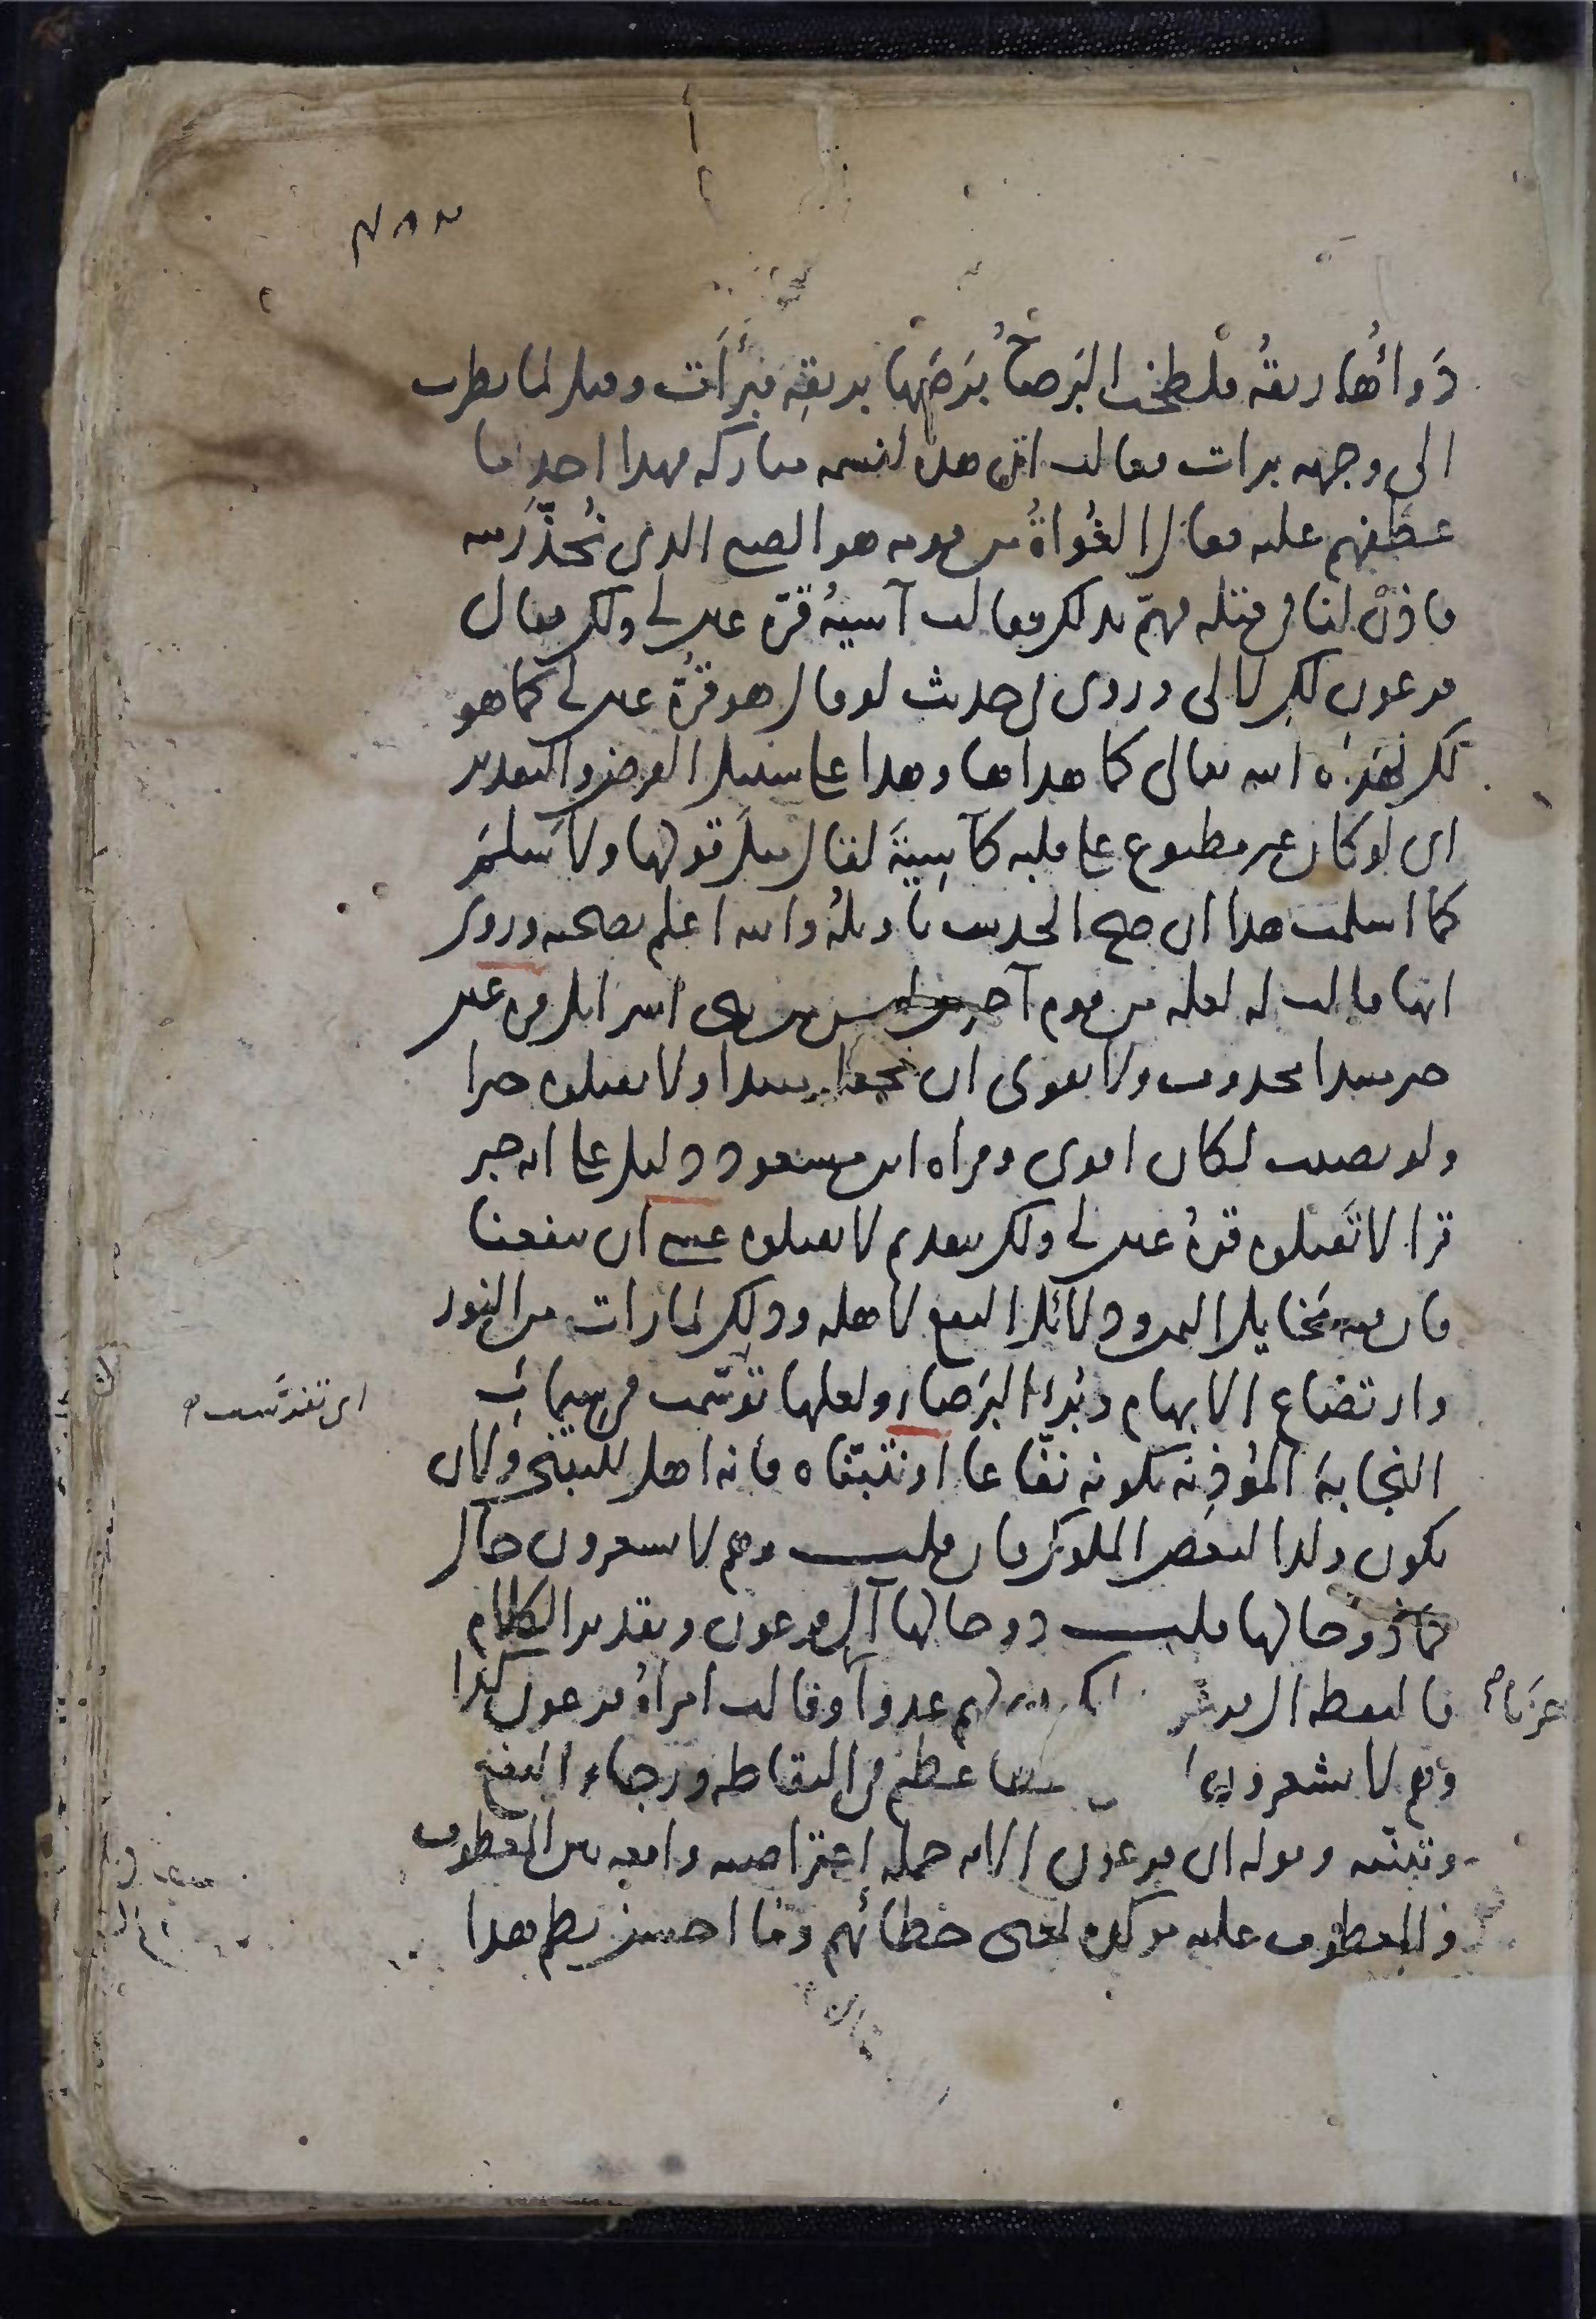 دَوَاؤُها ريقُه فلطخت البَرصاءُ بَرَصَها بريقِه فبَرَأَت وقيل لما نظرت
الى وجهه برات فقالت ان هذه لنسمة مباركة فهذا احد ما
عطفهم عليه فقال الغُواةُ من قومه هو الصبي الذي نُحَذَّر منه
فاذن لنا في قتله فهمّ بذلك فقالت آسيةُ قرة عين لي ولك فقال
فرعون لك لا لي وروي في حديث لو قال هو قُرّة عين لي كما هو
لك لهداه الله تعالى كما هداها وهذا على سبيل الفرض والتقدير
اى لو كان غير مطبوع على قلبه كآسِيَةَ لقال مثل قولها ولأسلَمَ
كما اسلمت هذا ان صح الحديث تاويله والله اعلم بصحته وروى
انها قالت له لعله من قوم آخرين ليس من بنى اسرائيل قرة عين
خبر مبتدا محذوف ولا يقوى ان تجعله مبتدا ولا تقتلوه خبرا
ولو نصبت لكان اقوى وقراءة ابن مسعود دليل على انه خبر
قرا لا تقتلوه قرةُ عين لي ولك بتقديم لا تقتلوه عسى ان ينفعنا
فان فيه مَخايل اليمن ودلائل النفع لاهله وذلك لما رات من النور
وارتضاع الابهام وبُرء البَرصاء ولعلها توسّمت في سيمائه
اى تفرّست
النجابة المُؤذِنة بكونه نفّاعا او نتبنّاه فانه اهل للتبني ولان
يكون ولدا لبعض الملوك فان قلت وهم لا يشعرون حال
فما ذو حالها قلت ذو حالها آل فرعون وتقدير الكلام
فالتقطه آل فرعون ليكون لهم عدوا وقالت امراةُ فرعون كذا
وحزنا
وهم لا يشعرون عظيم في التقاطه ورجاء النفع
وتبنّيه وقوله ان فرعون الاية جملة اعتراضية واقعة بين المعطوف
والمعطوف عليه موكدة لمعنى خطائهم وما احسن نظم هذا